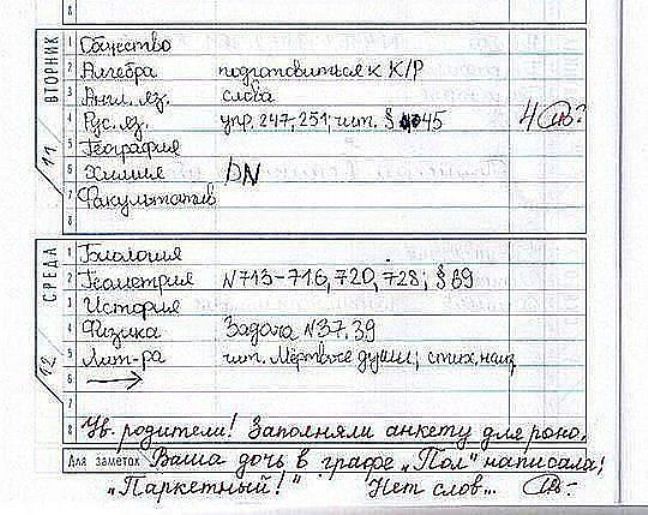 8
ВТОРНИК
11
1 Общество
2 Алгебра подготовиться к К/Р
3 Англ. яз. слова
4 Рус. яз. упр. 247, 251; чит. § 45 4
5 География
6 Химия
7 Факультатив
8
СРЕДА
12
1 Биология
2 Геометрия N713-716, 720, 728; § 89
3 История
4 Физика Задача N37, 39
5 Лит-ра чит. Мёртвые души; стих. наиз
6
7
8 Ув. родители! Заполняли анкету для роно,
Для заметок Ваша дочь в графе „Пол" написала;
„Паркетный!" Нет слов...